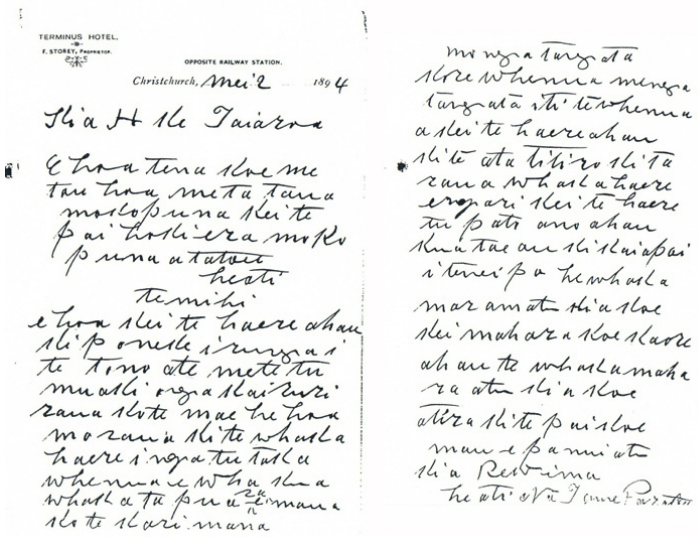 TERMINUS HOTEL.
F. STOREY, PROPRIETOR.
OPPOSITE RAILWAY STATION.
Christchurch, Mei 2 1894
Kia H Ke Taiaroa
E hoa tena koe me
tou hoa meta tana
mokopuna kei te
pai hoki era moko
puna a tatou
heoti
te mihi
e hoa kei te haere ahau
ki poneke i runga i
te tono ate mete tu
mu aki nga kairuri
rana kote mae he hoa
mo rana ki te whaka
haere i nga tu taka
whenua e wha kua
whaka ta pua mana
ko te kari mana
mo nga tangata
kore whenua me nga
tangata iti te whenua
a kei te haere ahau
ki te ata titiro ki ta
rana whakahaere
engari kei te haere
tu pato ano ahau
kua tae au ki kaiapai
i tenei po he whaka
maramatu kia koe
kei mahara koe kaore
ahau te whakamaha
ra atu kia koe
otira ki te pai koe
mau e panui atu
kia Rewima
heati Na Tame Parata